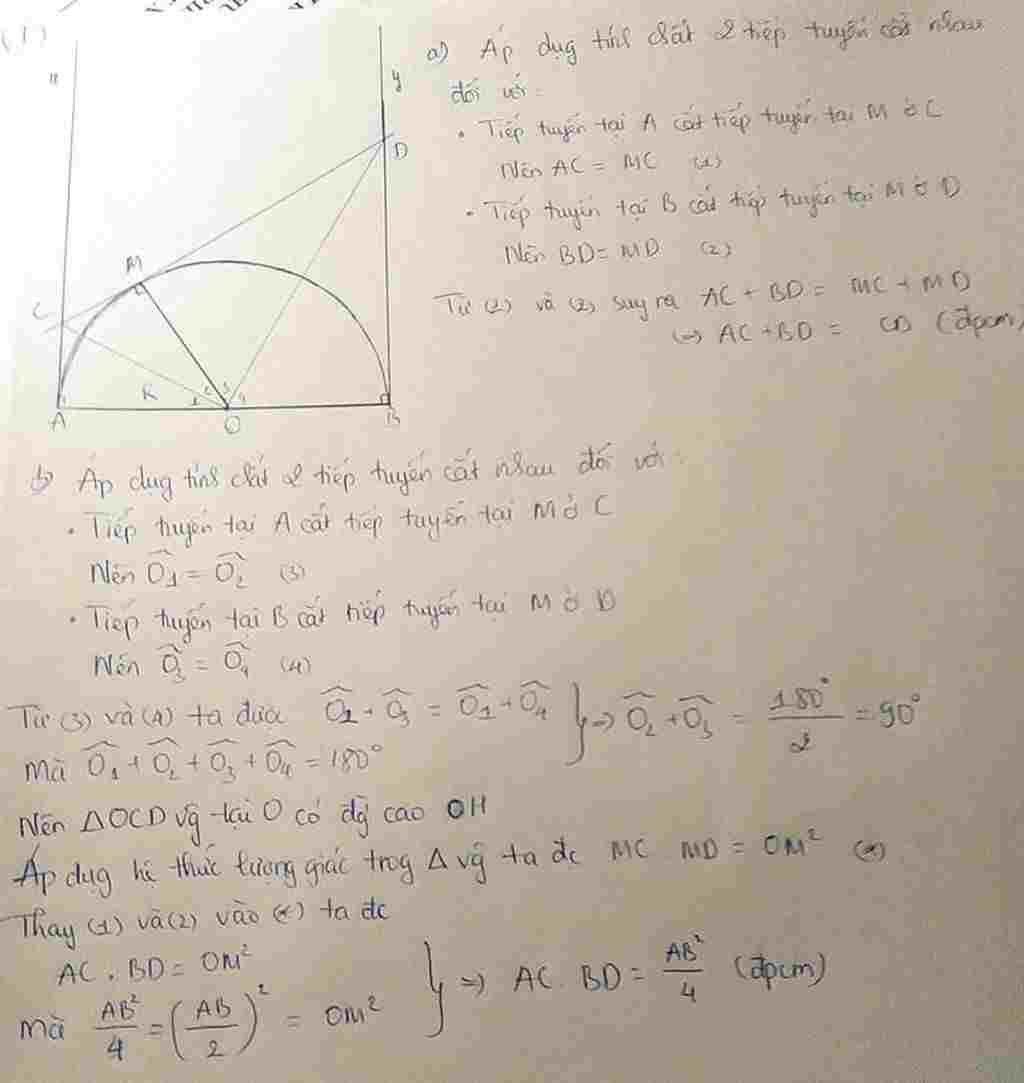 (1)
x
y
D
M
C
K
1 2 3 4
A
O
B
a) Áp dụg tính chất 2 tiếp tuyến cắt nhau
đối với:
• Tiếp tuyến tại A cắt tiếp tuyến tại M ở C
Nên AC = MC (1)
• Tiếp tuyến tại B cắt tiếp tuyến tại M ở D
Nên BD = MD (2)
Từ (1) và (2) suy ra AC + BD = MC + MD
(=) AC + BD = CD (đpcm)
b) Áp dụg tính chất 2 tiếp tuyến cắt nhau đối với:
• Tiếp tuyến tại A cắt tiếp tuyến tại M ở C
Nên Ô1 = Ô2 (3)
• Tiếp tuyến tại B cắt tiếp tuyến tại M ở D
Nên Ô3 = Ô4 (4)
Từ (3) và (4) ta được Ô2 + Ô3 = Ô1 + Ô4
Mà Ô1 + Ô2 + Ô3 + Ô4 = 180° } => Ô2 + Ô3 = 180°/2 = 90°
Nên ΔOCD vg tại O có đg cao OH
Áp dụg hệ thức lượng giác trog Δ vg ta đc MC MD = OM² (*)
Thay (1) và (2) vào (*) ta đc
AC . BD = OM²
Mà AB²/4 = (AB/2)² = OM² } => AC . BD = AB²/4 (đpcm)